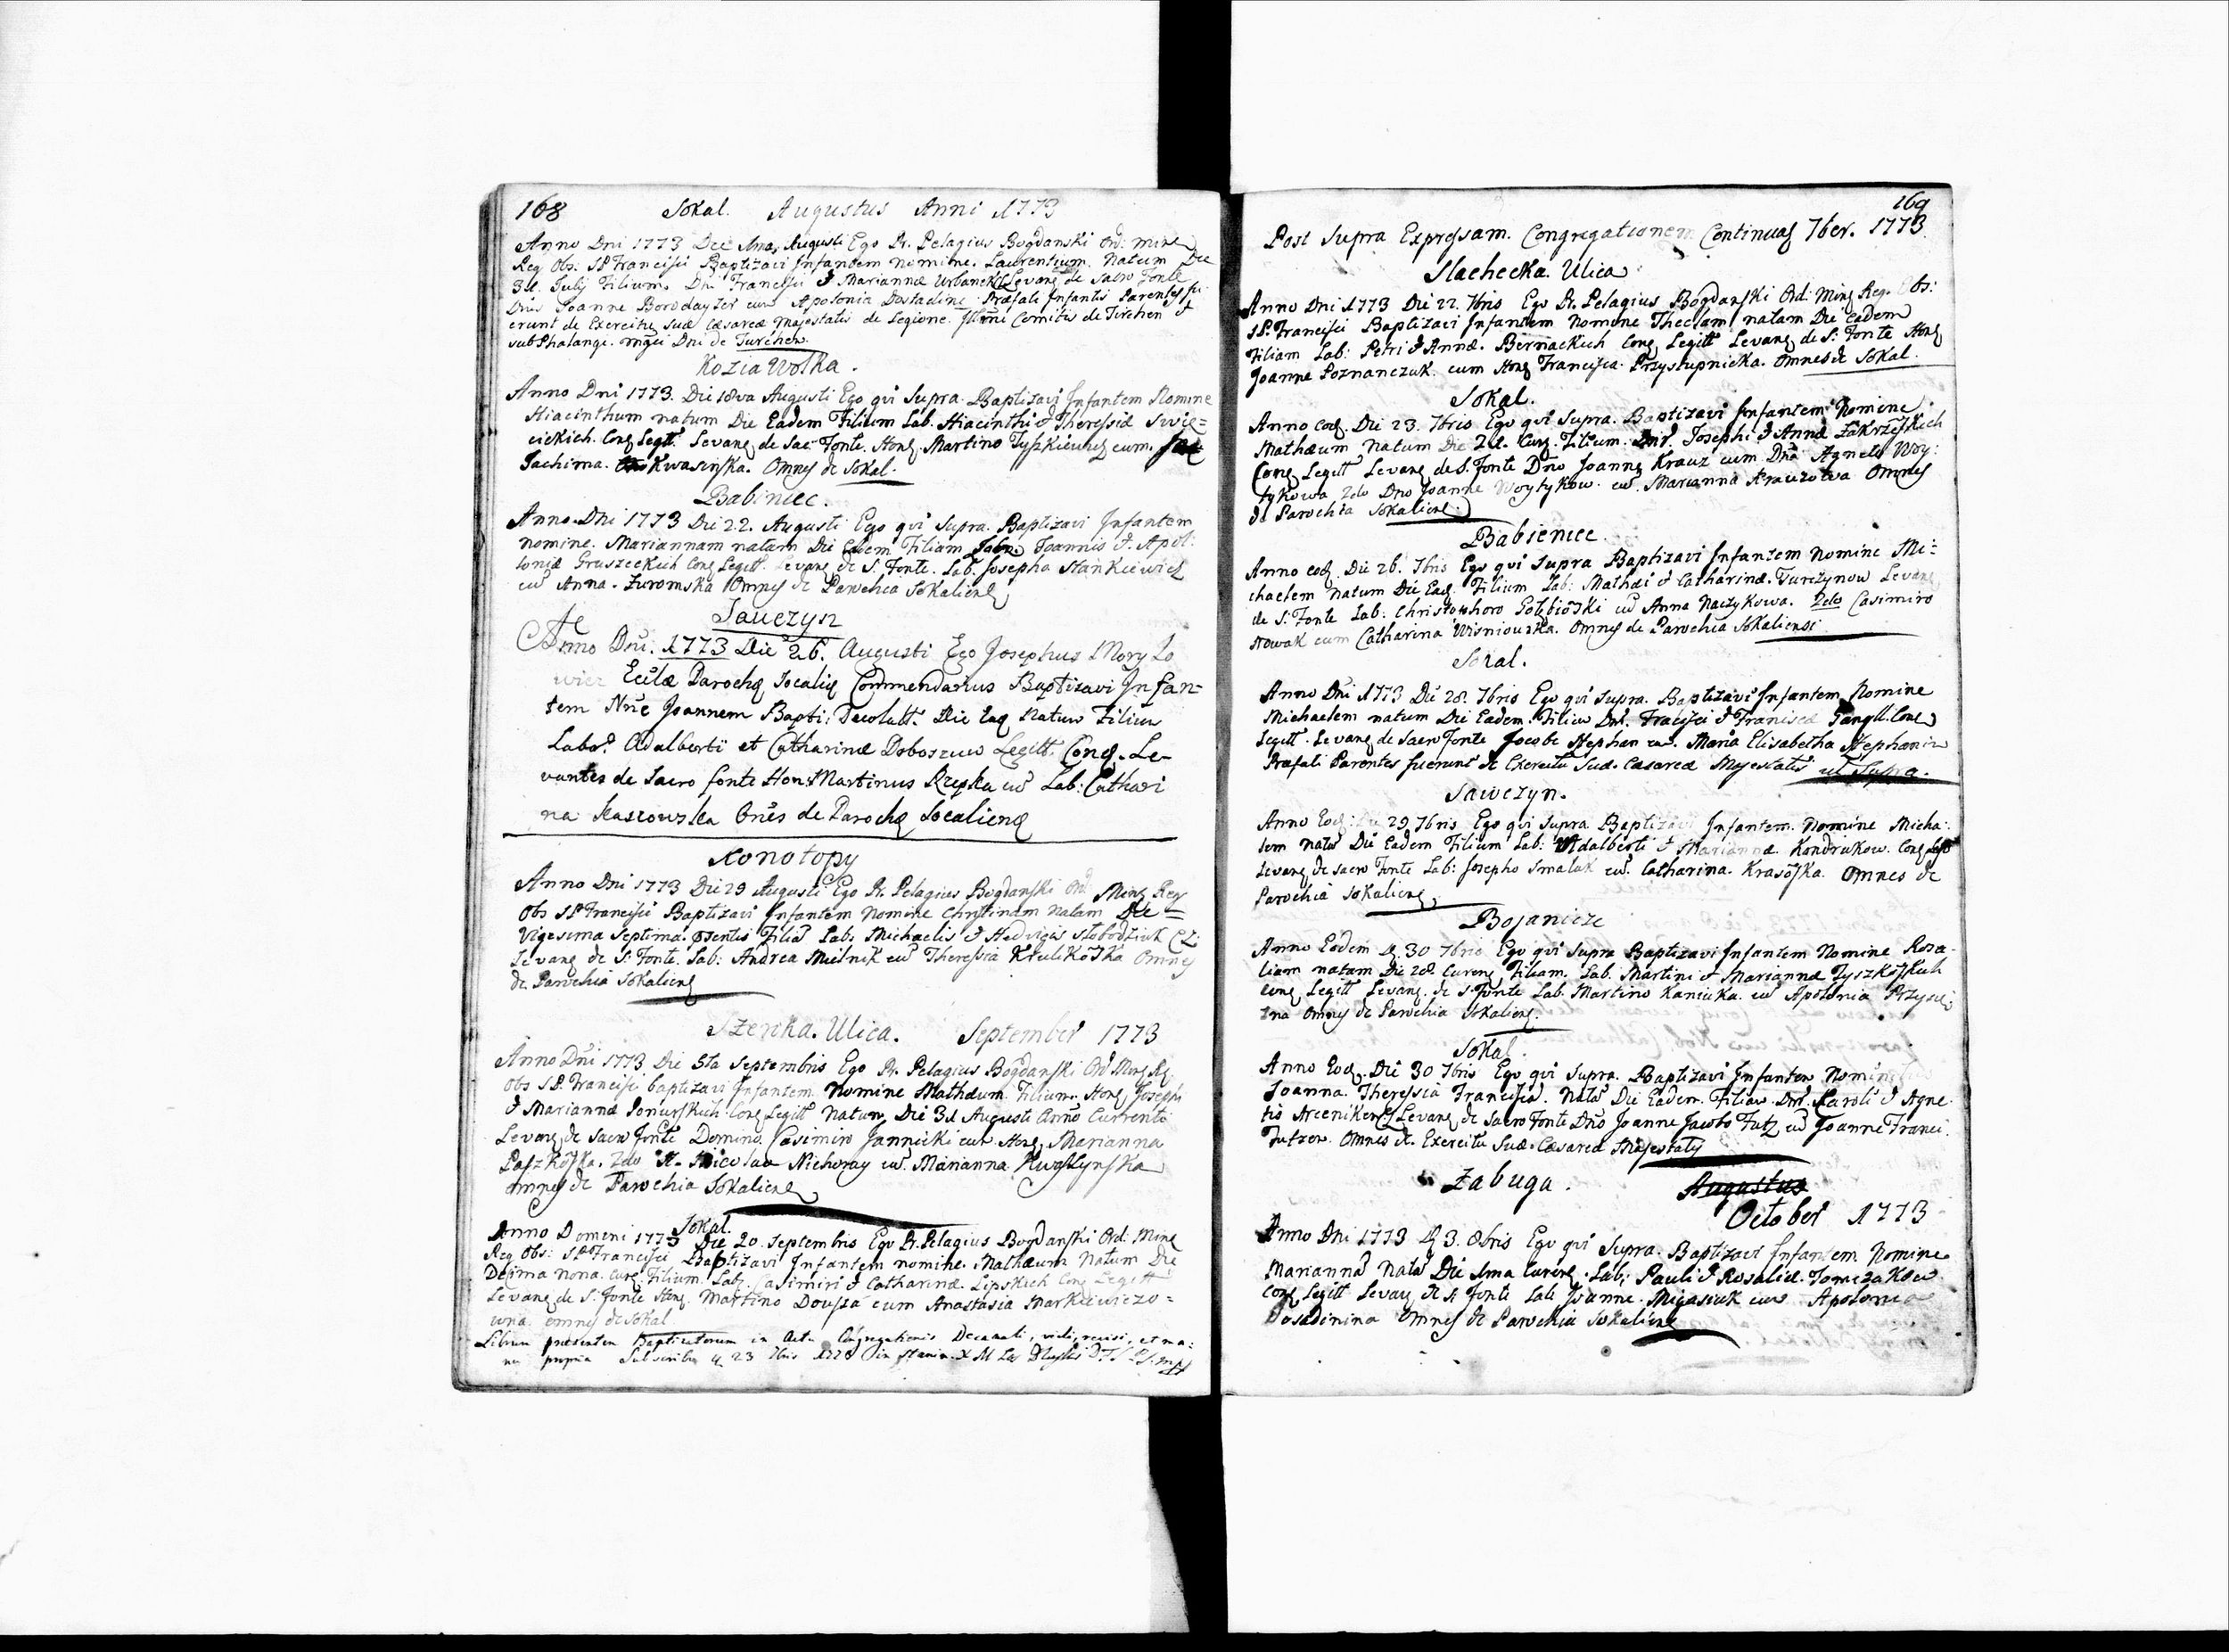 168 Sokal. Augustus Anni 1773
Anno Dni 1773 Die 1ma Augusti Ego Pr. Pelagius Bogdanski Ord: Minq
Reg Obs: S.P. Francisci Baptizavi Infantem nomine. Laurentium. Natum Die
31. July Filium. Dni Francisci & Mariannæ Levanq de Sacro Fonte
Dnus Joanne cum Apolonia Præfati Infantis Parentes fu
erunt de Exercitu Suæ Cæsareæ Majestatis de Legione. Comitis de Tirchen &
sub Phalange. Dni de Turchen
Kozia Wolka.
Anno Dni 1773. Die 18va Augusti Ego qui Supra. Baptizavi Infantem Nomine
Hiacinthum natum Die Eadem Filium Lab. Hiacinthi & Theressiæ Swię=
cickich. Conq Legtt. Levanq de Sac. Fonte. Honq. Martino cum.
Jachima. Kwasinska. Omnes de Sokal.
Babiniec.
Anno Dni 1773 Die 22. Augusti Ego qui Supra. Baptizavi Infantem
nomine. Mariannam natam Die Eadem Filiam Joannis & Apol:
loniæ Gruszeckich Conq Legitt. Levanq de S. Fonte. Lab. Josepho Stankiewicz
cu Anna. Zuromska Omnes de Parochia Sokalienq
Sawczyn
Anno Dni: 1773 Die 26. Augusti Ego Josephus Mory Lo
wicz Ecclæ Parochq Socaliq Commendarius Baptizavi Infan=
tem Nne Joannem Bapti: Decolatt. Die Eaq Natum Filium
Labo? Adalberti et Catharinæ Doboszuw Legitt. Conq. Le-
vantes de Sacro fonte Hon: Martinus Rzepka cu Lab: Cathari
na Kaszowska Ones de Parochq Socalienq
Konotopy
Anno Dni 1773 Die 29 Augusti Ego Pr. Pelagius Bogdanski Ord Minq Reg
Obs S.P. Francisci Baptizavi Infantem Nomine Christinam Natam Die =
Vigesima Septima. Filia Lab. Michaelis & Hedvigis Slobodziuk
Levanq de S. Fonte. Lab: Andrea Mielnik cu Theressia Krulikoska Omnes
de Parochia Sokalienq
Szeroka. Ulica. September 1773
Anno Dni 1773 Die 5ta Septembris Ego Pr. Pelagius Bogdanski Ord Minq Rq.
Obs S.P. Francisci baptizavi Infantem Nomine Mathæum Filium. Honq Joseph
& Mariannæ Conq Legitt Natum Die 31 Augusti Anno Currenti
Levanq de Sacro fonte Domino. Casimiro Jannicki cum Honq. Marianna
2do H. Nicolao Nichoray cu. Marianna Kwasynska
omnes de Parochia Sokalienq
Sokal.
Anno Domini 1773 Die 20. Septembris Ego Pr. Pelagius Bogdanski Ord: Minq
Reg Obs: S.P. Francisci Baptizavi Infantem nomine. Mathæum Natum Die
Decima nona. Curq. Filium. Lab. Casimiri & Catharinæ. Lipskich Conq Legitt
Levanq de S. fonte Honq. Martino cum Anastasia Markiewiczo=
wna. omnes de Sokal
Librum præsentem Baptizatorum in Actu Congregationis Decanali, vidi, revisi, et ma:
nu propria Subscribo 23 7bris
169
Post Supra Expressam. Congregationem Continuaq 7ber. 1773.
Slachecka. Ulica
Anno Dni 1773 Die 22. 7bris Ego Pr. Pelagius Bogdanski Ord: Minq Reg. Obs:
S.P. Francisci Baptizavi Infantem Nomine Theclam natam Die Eadem
Filiam Lab: Petri & Annæ. Birnackich Conq Legitt Levanq de S: Fonte Honq
Joanne Poznanczuk. cum Honq Francisca. Przystupnicka. Omnes de Sokal.
Sokal.
Anno eoq. Die 23. 7bris Ego qui Supra. Baptizavi Infantem Nomine
Mathæum Natum Die 21. Curq. Filium. Josephi & Annæ Zakrzeskich
Conq Legitt Levanq de S. fonte Dno Joanne Krauz cum Dna Agnete Woy:
tykowa 2do Dno Joanne Woytykow. cu. Marianna Krauzowa Omnes
de Parochia Sokalienq
Babieniec.
Anno eoq. Die 26. 7bris Ego qui Supra Baptizavi Infantem nomine Mi=
chaelem natum Die Eaq. Filium Lab: Mathæi & Catharinæ. Turczynow Levanq
de S. Fonte Lab: Christophoro Gołębioski cu Anna Naczykowa. 2do Casimiro
Nowak cum Catharina Wisniowska. Omnes de Parochia Sokaliensi
Sokal.
Anno Dni 1773 Die 28. 7bris Ego qui Supra. Baptizavi Infantem Nomine
Michaelem natum Die Eadem. Filiu Dni. Francisci & Franciscæ Conq
Legitt. Levanq de Sacro fonte Jacobe Stephan cu. Maria Elisabetha Stephanin
Præfati Parentes fuerunt de Exercitu Suæ. Cæsareæ Majestatis ut Supra.
Sawczyn.
Anno Eoq: Die 29 7bris Ego qui Supra. Baptizavi Infantem. Nomine Micha:
lem Natu Die Eadem Filium Lab: Adalberti & Mariannæ. Kondrukow. Conq Legtt
Levanq de Sacro Fonte Lab: Josepho Smalak cu. Catharina. Krasoska. Omnes de
Parochia Sokalienq
Bojanicze
Anno Eodem 30 7bris Ego qui Supra Baptizavi Infantem Nomine Roza-
liam natam Die 28. Curenq Filiam. Lab. Martini & Mariannæ
conq Legitt Levanq. de S. Fonte Lab. Martino Kaniuka. cu Apolonia
Omnes de Parochia Sokalienq.
Sokal
Anno Eoq. Die 30 7bris Ego qui Supra. Baptizavi Infantem Nomine
Joanna. Theressia Francisca. Nata Die Eadem. Filia. Dni. Karoli & Agne
tis Levanq de Sacro Fonte Dno Joanne Jacobo cu Joanne Franci.
Omnes de. Exercitu Suæ Cæsareæ Majestatis
Zabuga. Augustus
October 1773
Anno Dni 1773 3. 8bris Ego qui Supra. Baptizavi Infantem. Nomine
Marianna Nata Die 1ma Curenq. Lab; Pauli & Rosaliæ. Tomczakow
Conq Legitt Levanq de S. Fonte Lab Joanne. Migasiuk cum Apolonia
Posadinina Omnes de Parochia Sokalienq